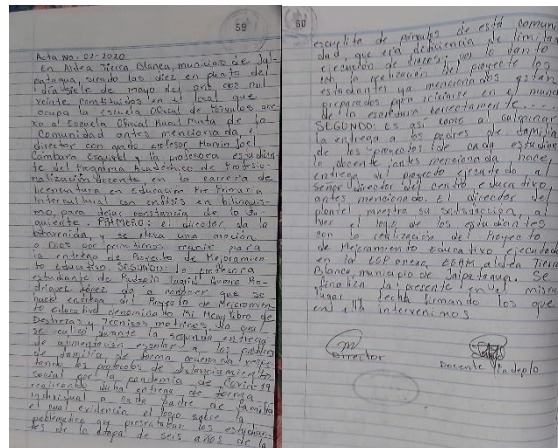 59
Acta No. 02-2020
En Aldea Tierra Blanca, municipio de Jal-
patagua, siendo las diez en punto del
día siete de mayo del dos mil
veinte constituidos en el local que
ocupa la escuela Oficial de Párvulos ane-
xo a Escuela Oficial Rural Mixta de la
Comunidad antes mencionada, el
director con grado profesor Marvin Joel
y la profesora estudian-
te del Programa Académico de Profesio-
nalización Docente en la carrera de
licenciatura en Educación Pre Primaria
Intercultural con énfasis en bilinguis-
mo, para dejar constancia de lo si-
guiente. PRIMERO: el director da la
bienvenida, y se hace una oración
a Dios por permitirnos reunir para
la entrega de Proyecto de Mejoramien-
to Educativo. SEGUNDO: la profesora
estudiante de
López da a conocer que se
hace entrega del Proyecto de Mejoramien-
to Educativo denominado Mi Mega libro de
Destrezas y Técnicas motrices, la cual
se realizó durante la segunda entrega
de alimentación escolar a los padres
de familia de forma ordenada respe-
tando los protocolos de distanciamiento
social por la pandemia de Covid-19
realizando dicha entrega de forma
individual a cada padre de familia
el cual evidencia el logro sobre la
que presentaban los estudian-
tes de la etapa de seis años de la
60
escuelita de párvulos de esta comuni-
dad, que era deficiencia de limitada
ejecución de trazos; por lo tanto
con la realización del proyecto los
estudiantes ya mencionados están
preparados para iniciarse en el mundo
de la escritura correctamente.
SEGUNDO: Es así como al culminar
la entrega a los padres de familia
de los proyectos de cada estudiante
la docente antes mencionada hace
entrega del proyecto ejecutado al
Señor director del centro educativo
antes mencionado. El director del
plantel muestra su satisfacción, al
ver el logro de los estudiantes
con la realización del Proyecto
de Mejoramiento educativo ejecutado
en la EOP anexa, EORM aldea Tierra
Blanca, municipio de Jalpatagua. Se
finaliza la presente en el mismo
lugar y fecha firmando los que
en ella intervenimos
Director
Docente